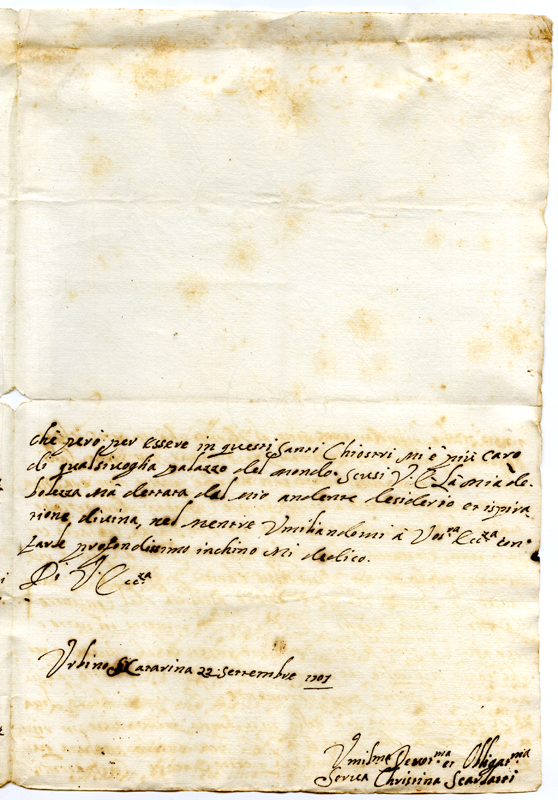 che però per essere in questi Santi Chiostri mi è più caro
di qualsivoglia palazzo del mondo. Scusi V. E. la mia de-
bolezza ma dettata dal mio ardente desiderio et ispira-
tione divina, nel mentre Umiliandomi à Vos.ra Ecc.za con
profondissimo inchino Mi dedico.
Di V. Ecc.za
Urbino S. Catarina 22 settembre 1701
Umilma Devot.ma et Obligat.ma
Serva Christina